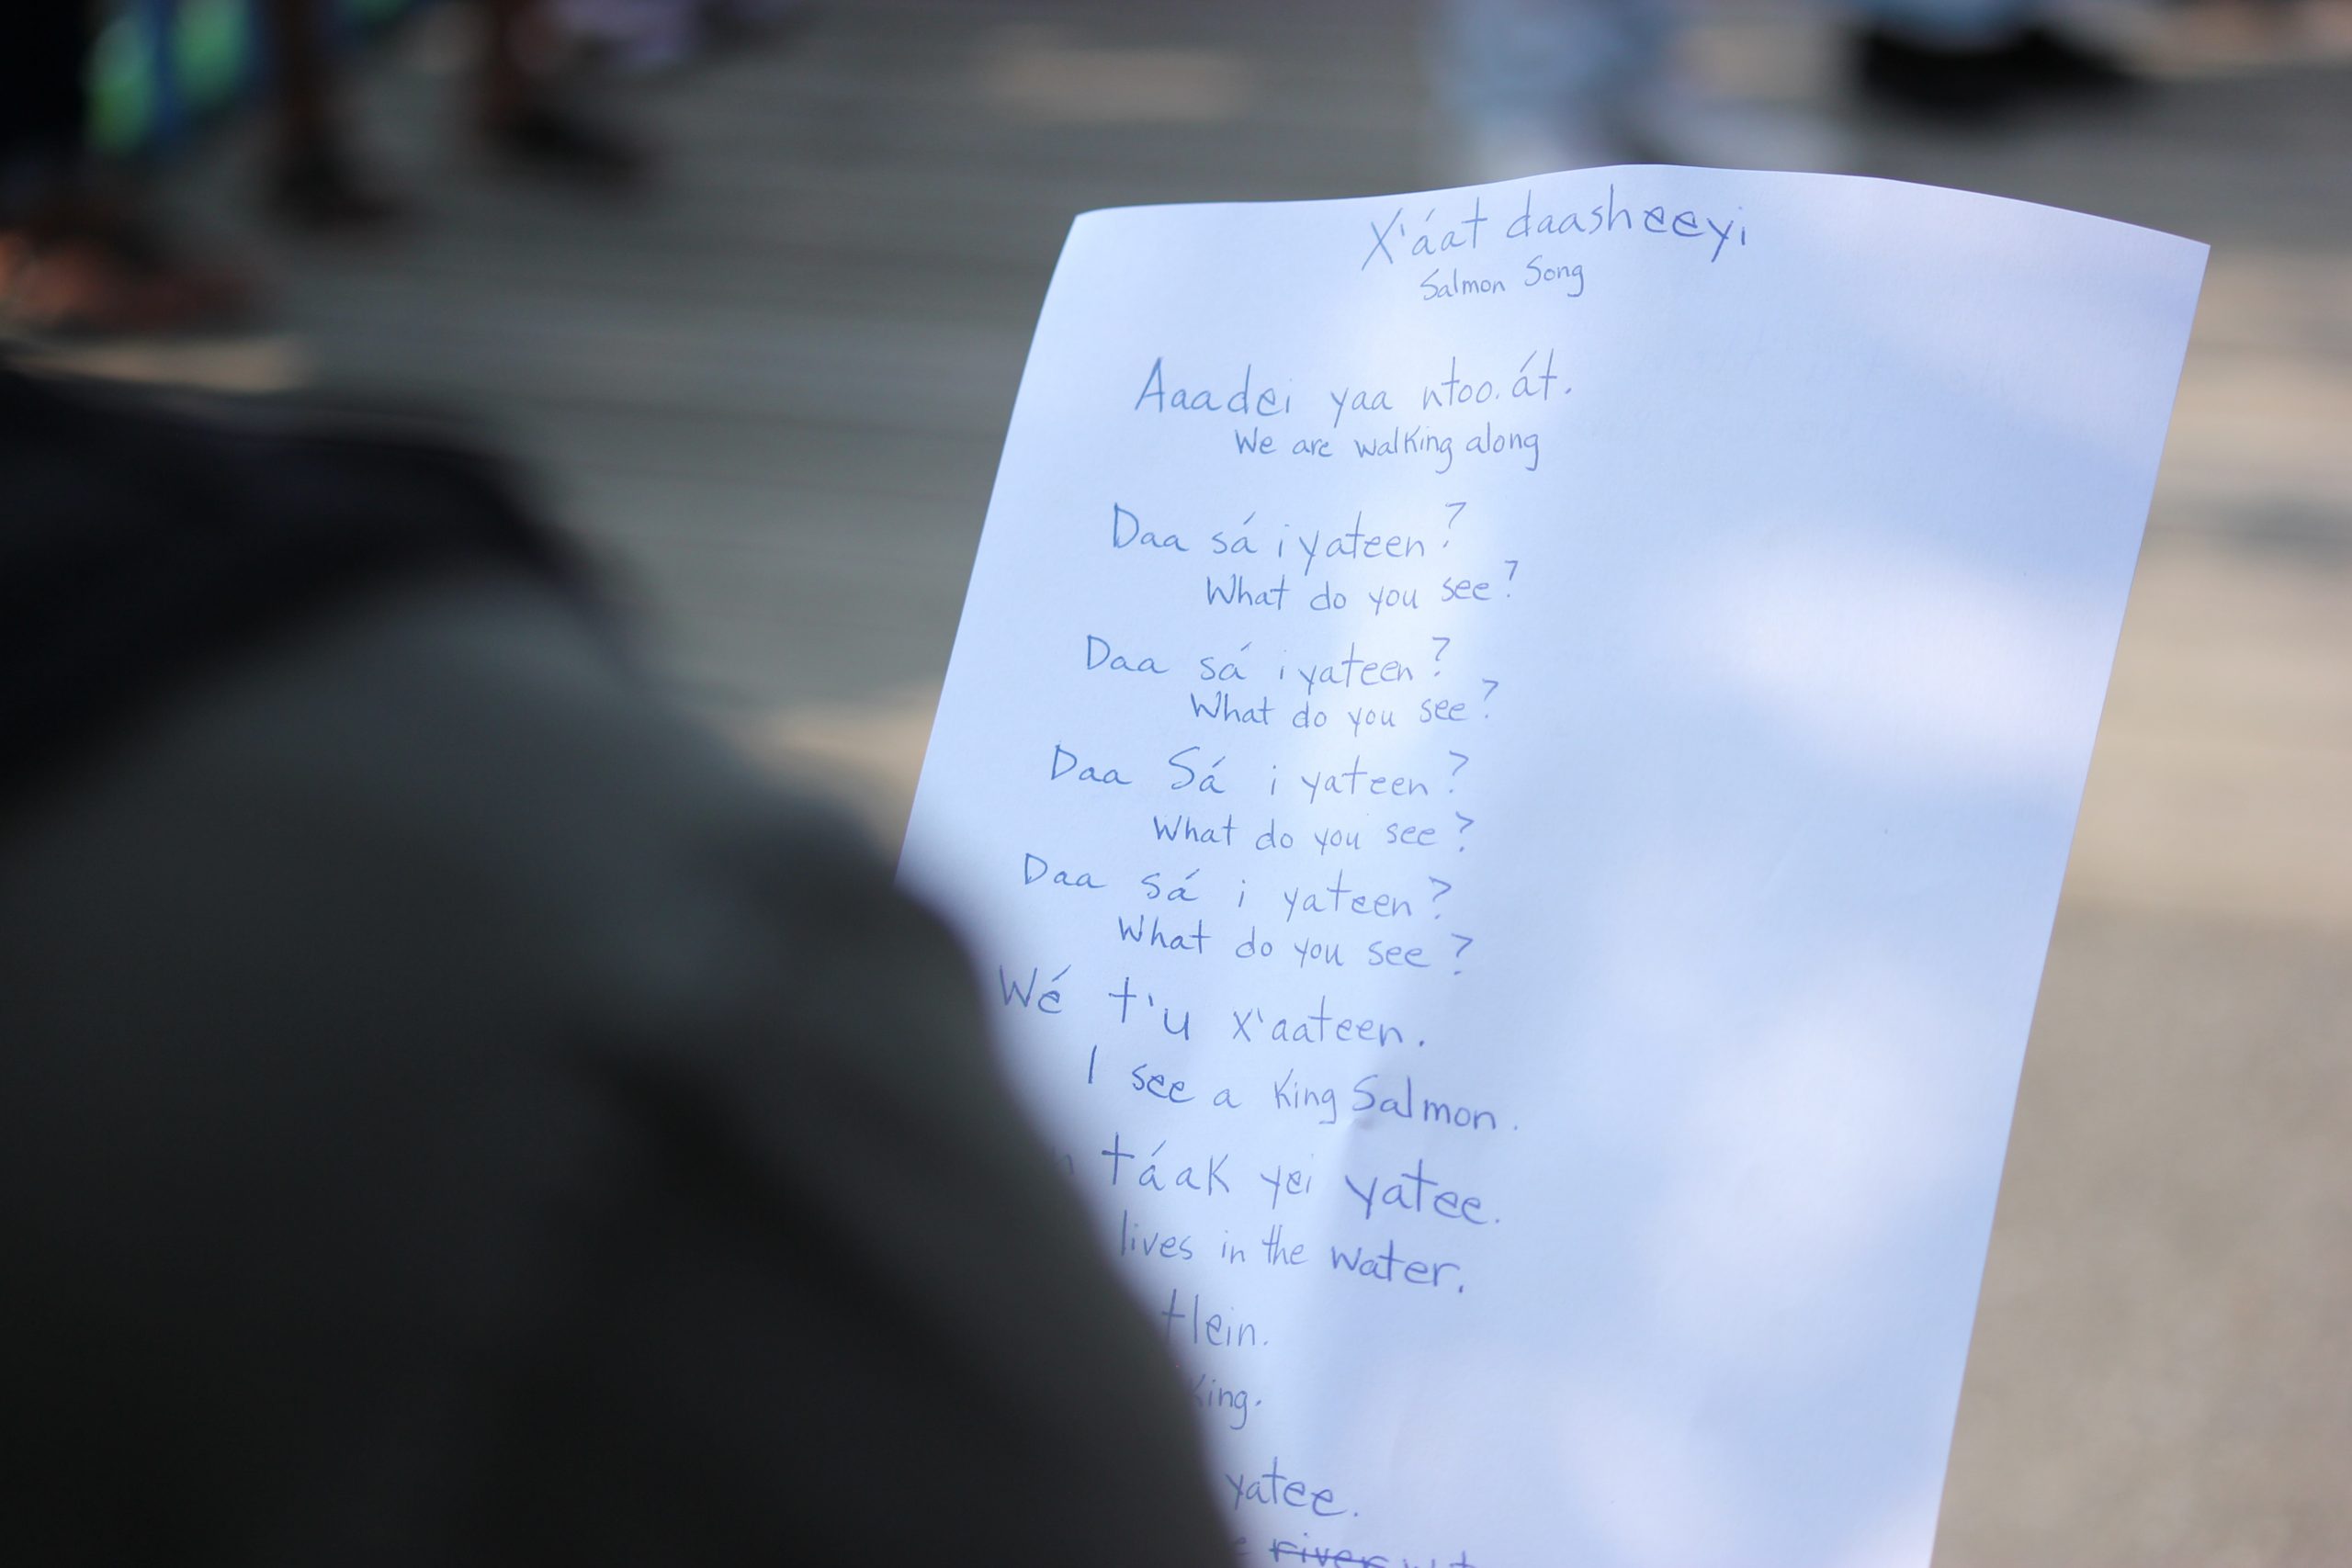 X'áat daasheeyi
Salmon Song
Aaadei yaa ntoo.át.
We are walking along
Daa sá iyateen?
What do you see?
Daa sá iyateen?
What do you see?
Daa Sá i yateen?
What do you see?
Daa sá i yateen?
What do you see?
Wé t'u x'aateen.
I see a King Salmon.
táak yei yatee.
lives in the water.
tlein.
King.
yatee.
river